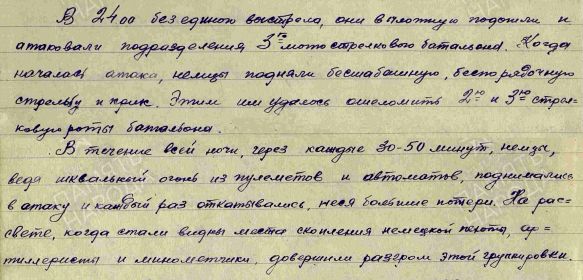 В 24 00 без единого выстрела, они вплотную подошли и
атаковали подразделения 3го мотострелкового батальона. Когда
началась атака, немцы подняли бесшабашную, беспорядочную
стрельбу и крик. Этим им удалось ошеломить 2ю и 3ю стрел-
ковую роты батальона.
В течение всей ночи, через каждые 30-50 минут, немцы,
ведя шквальный огонь из пулеметов и автоматов, поднимались
в атаку и каждый раз откатывались, неся большие потери. На рас-
свете, когда стали видны места скопления немецкой пехоты, ар-
тиллеристы и минометчики, довершили разгром этой группировки.